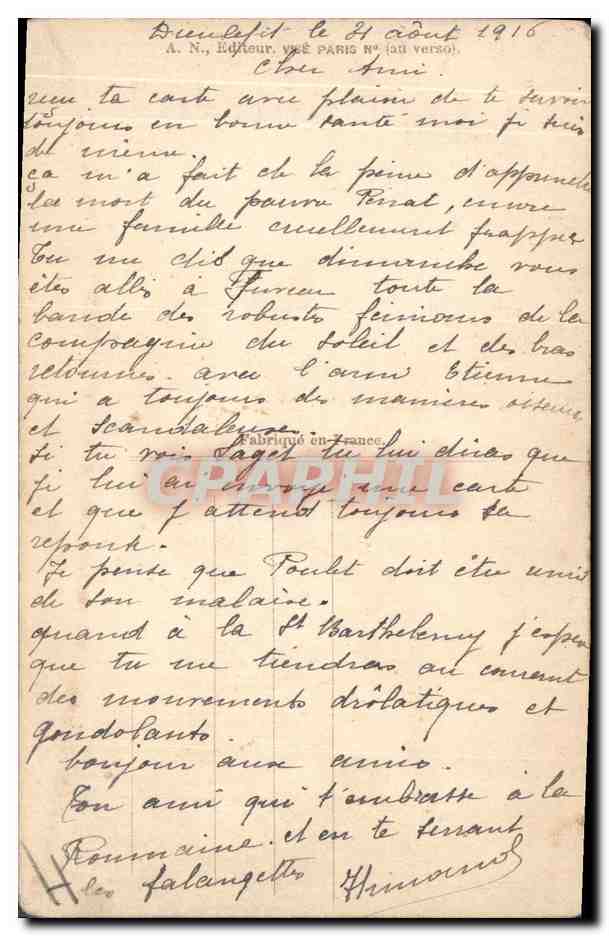 Dieulefit le 21 août 1916
A. N., Editeur. VISÉ PARIS No (au verso).
Cher Ami
reçu ta carte avec plaisir de te savoir
toujours en bonne santé moi je suis
de même.
ça m'a fait de la peine d'apprendre
la mort du pauvre Perrat, encore
une famille cruellement frappée
Tu me dis que dimanche vous
êtes allés à Fureau toute la
bande des robustes de la
compagnie du soleil et des bras
retournés avec l'ami Etienne
qui a toujours des manières
et scandaleuses.
Fabriqué en France.
si tu vois Saget tu lui diras que
CPAPHIL
je lui ai envoyé une carte
et que j'attend toujours sa
reponse.
Je pense que Poulet doit être
de son malaise.
quand à la St Barthelemy j'espère
que tu me tiendras au courant
des mouvements drôlatiques et
gondolants
bonjour aux amis.
Ton ami qui t'embrasse à la
Roumaine. et en te serrant
les falangettes